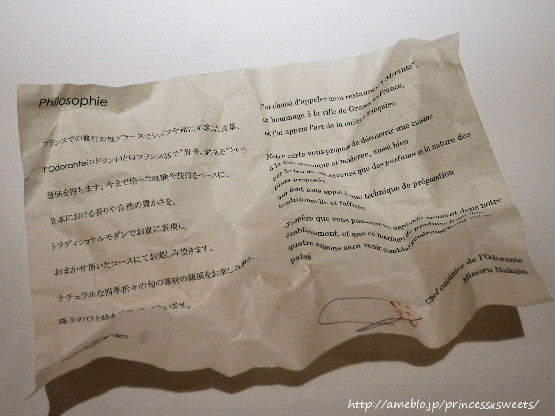 Philosophie
フランスでの修行の地グラースでシェフ今帰仁が
l'Odorante(ロドラント)とはフランス語で"芳香、
意味を持ちます。今まで培った経験や技術をベースに、
日本における香りや自然の豊かさを、
トラディショナルモダンでお皿に表現し、
おまかせ頂いたコースにてお楽しみ頂きます。
ナチュラルな四季折々の旬の素材の
珠玉のひと時を
J'ai choisi d'appeler mon restaurant "l'Odorante",
en hommage à la ville de Grasse en France,
où j'ai appris l'art de la cuisine française.
Notre carte vous propose de découvrir une cuisine
à la fois classique et moderne, aussi bien
que des parfums de la nature des
plats proposés,
qui font tous appel à une technique de préparation
traditionnelle et raffinée.
J'espère que vous passerez un agréable moment dans notre
établissement, et que ce mariage de produits
quatre saisons saura venir combler
palais
Chef cuisinier de l'Odorante
Minoru Nakijin
http://ameblo.jp/princessxsweets/